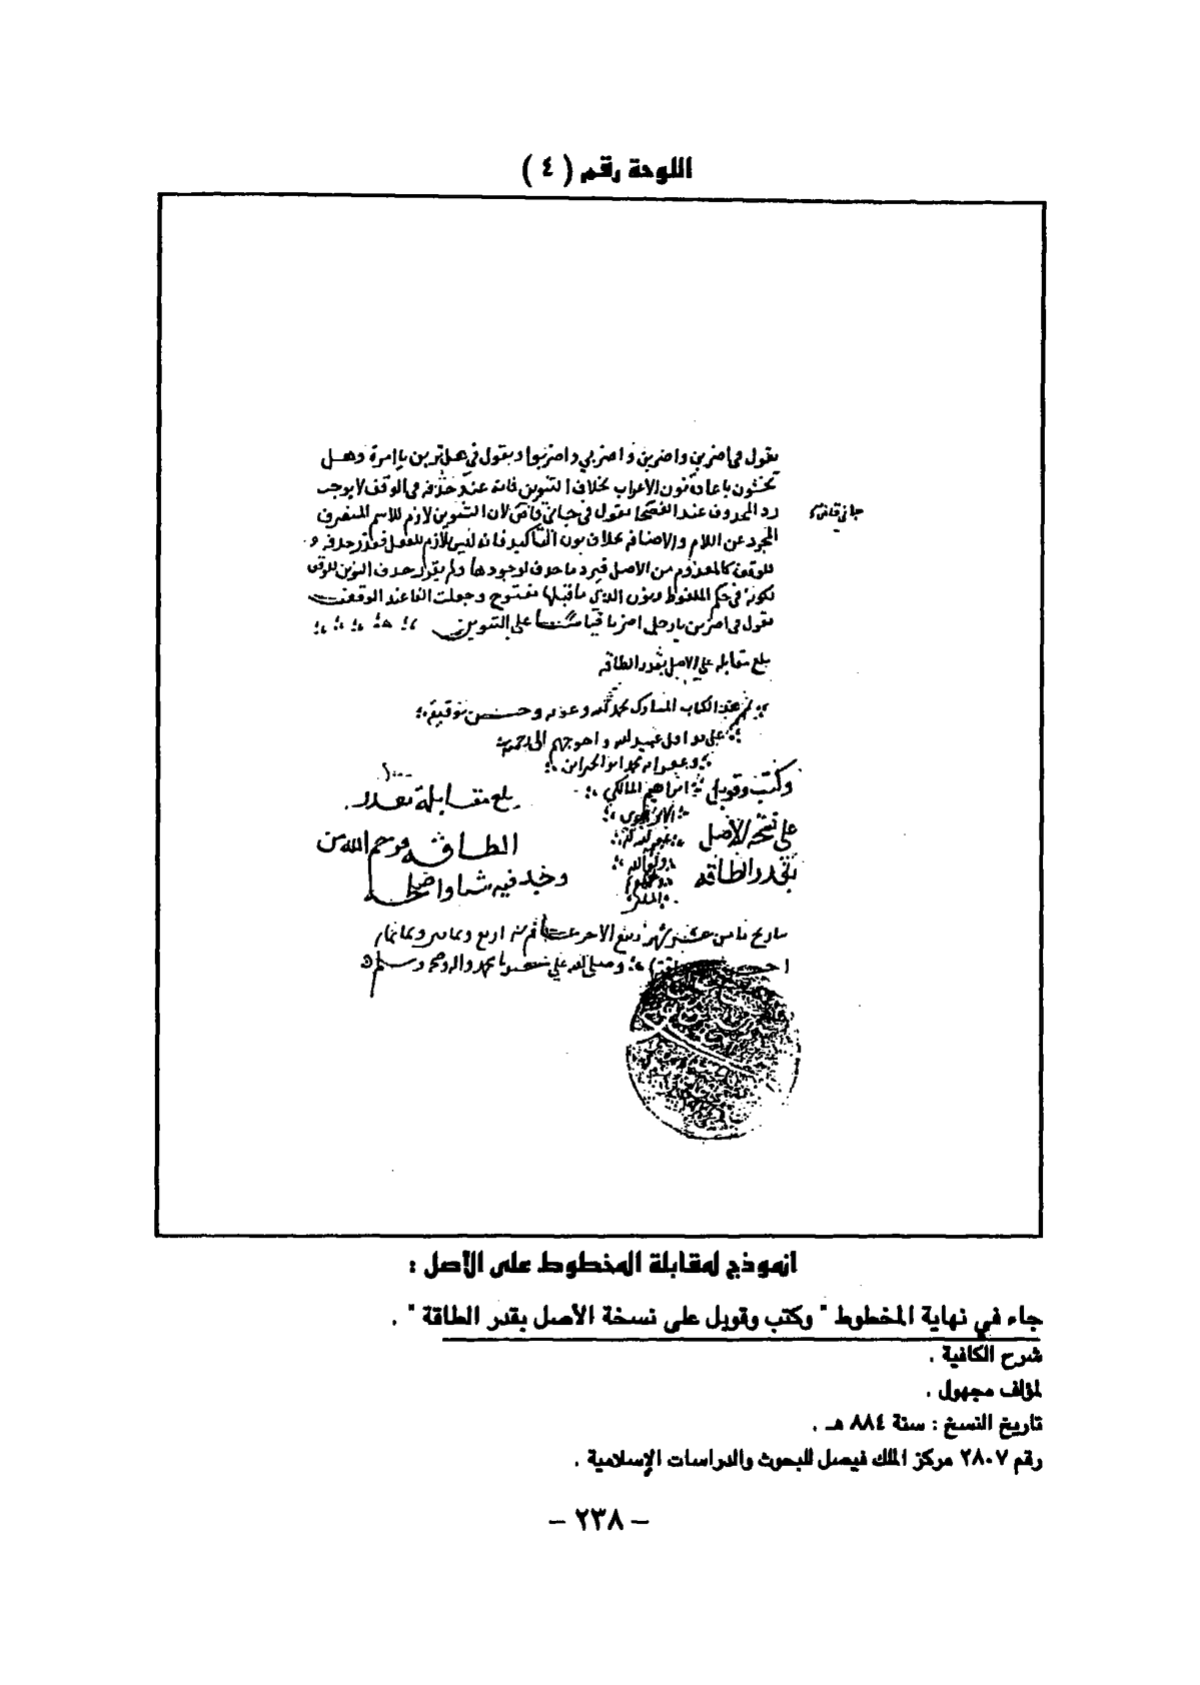 اللوحة رقم ( ٤ )
تقول في اضربن واضربن واضربي واضربوا وتقول في هل تربن يا امرة وهل
تخشون باعادة نون الاعراب بخلاف التنوين فانه عند حذفه في الوقف لا يوجب
رد المحذوف عند الفصحا تقول في جاني قاض لان التنوين لازم للاسم المتصرف
جاني قاض
المجرد عن اللام والاضافه بخلاف نون التاكيد فانه ليس لازم للفعل فقدر حذفه
للوقف كالمعدوم من الاصل فيرد ما حذف لوجودها ولم يقدر حذف التنوين للوقف
لكونه في حكم الملفوظ ونون الذي ما قبلها مفتوح وجعلت الفا عند الوقف
تقول في اضربن يا رجل اضربا قياسا على التنوين
بلغ مقابله على الاصل بقدر الطاقه
تم هذا الكتاب المبارك بحمد الله وعونه وحسن توفيقه
على يد اقل عبيد الله واحوجهم الى رحمته
وعفوانه محمد ابو الخير ابن
ابراهيم المالكي
غفر الله له
ولوالديه
وكتب وقوبل
على نسخة الاصل
بقدر الطاقه
بلغ مقابلة بقدر
الطاقه فرحم الله من
وجد فيه شيا واصلحه
بتاريخ ثامن عشر شهر ربيع الاخر سنة اربع وثمانين وثمانمايه
وصلى الله على سيدنا محمد واله وصحبه وسلم
انموذج لمقابلة المخطوط على الأصل :
جاء في نهاية المخطوط " وكتب وقوبل على نسخة الأصل بقدر الطاقة " .
شرح الكافية .
لمؤلف مجهول .
تاريخ النسخ : سنة ٨٨٤ هـ .
رقم ٢٨٠٧ مركز الملك فيصل للبحوث والدراسات الإسلامية .
– ٢٣٨ –